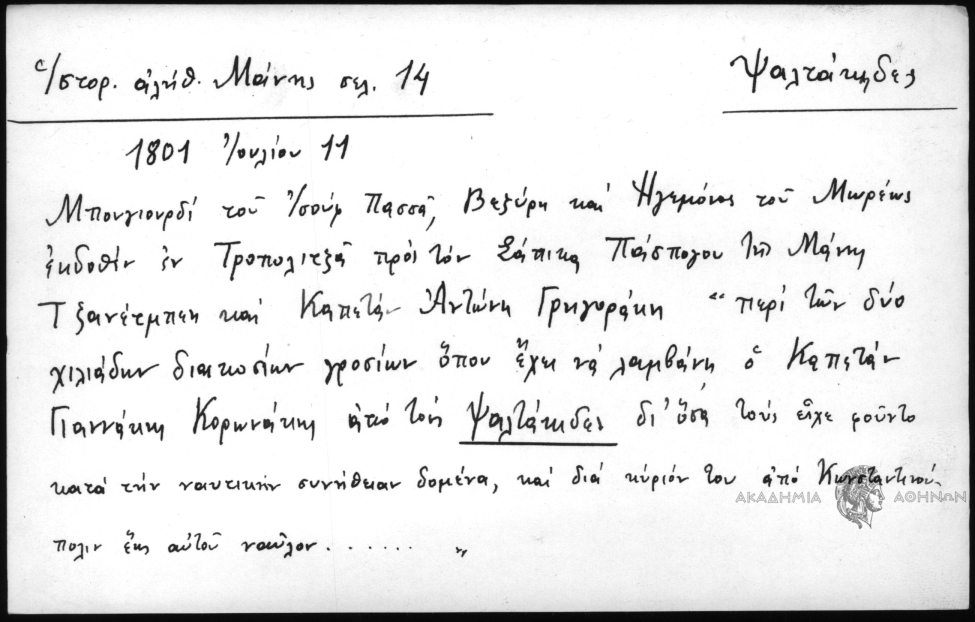 Ἱστορ. ἀλήθ. Μάνης σελ. 14
Ψαλτάκηδες
1801 Ἰουλίου 11
Μπουγιουρδί τοῦ Ἰσούφ Πασσᾶ, Βεζύρη καί Ηγεμόνος τοῦ Μωρέως
ἐκδοθέν ἐν Τροπολιτζᾶ πρός τόν Σάπικα Πάσπογου τῆς Μάνης
Τζανέτμπεη καί Καπετάν Ἀντώνη Γρηγοράκη “ περί τῶν δύο
χιλιάδων διακοσίων γροσίων ὅπου ἔχει νά λαμβάνη ὁ Καπετάν
Γιαννάκης Κορωνάκης ἀπό τούς Ψαλτάκιδες δι' ὅσα τούς εἶχε φοῦντο
κατά τήν ναυτικήν συνήθειαν δομένα, καί διά κύριόν του ἀπό Κωνσταντινού-
πολιν ἕως αὐτοῦ ναῦλον....... ”
ΑΚΑΔΗΜΙΑ ΑΘΗΝΩΝ